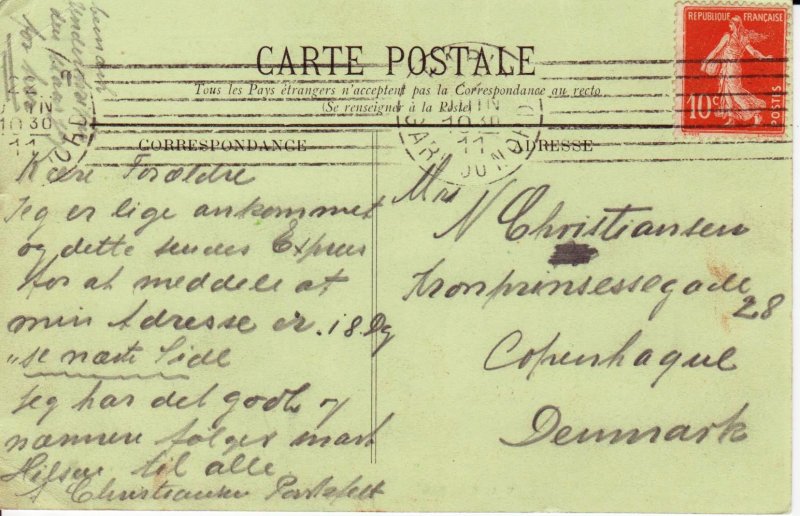 CARTE POSTALE
Tous les Pays étrangers n'acceptent pas la Correspondance au recto
(Se renseigner à la Poste)
CORRESPONDANCE
ADRESSE
RÉPUBLIQUE FRANÇAISE
10c
POSTES
10 30
10 30
11
PARIS
NORD
Kære Forældre
Jeg er lige ankommet
og dette sendes Expres
for at meddele at
min Adresse er
"se næste Side
Jeg har det godt og
nærmere følger snart
Hilsen til alle
A Christiansen
Mrs
N Christiansen
Kronprinsessegade
28
Copenhague
Denmark